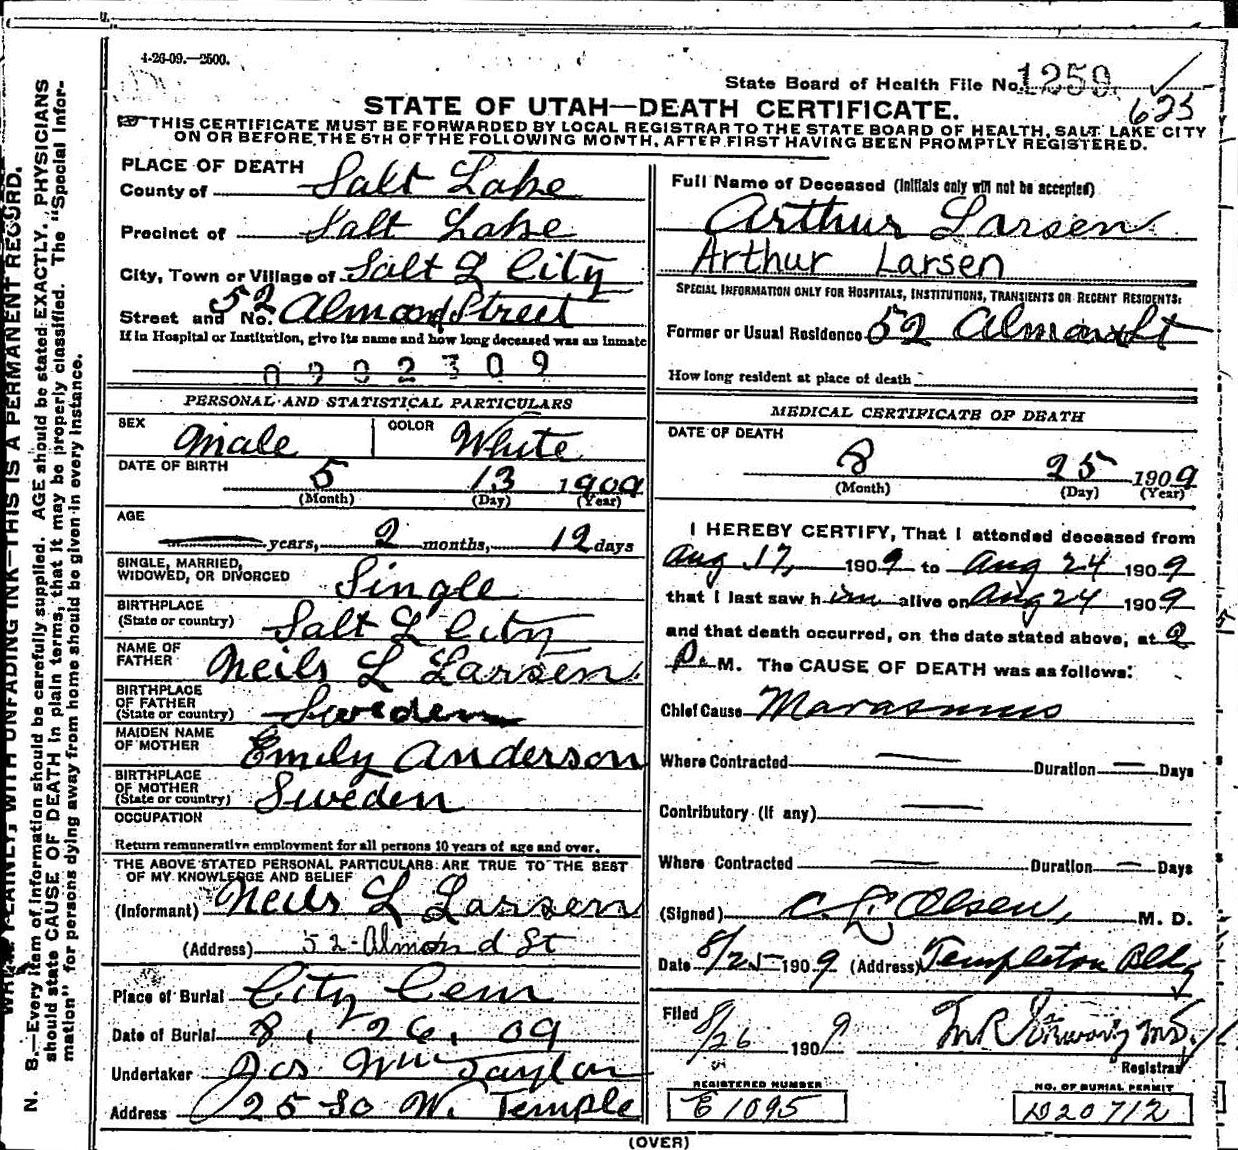 4-26-09.—2500.
State Board of Health File No. 1259
625
STATE OF UTAH—DEATH CERTIFICATE.
THIS CERTIFICATE MUST BE FORWARDED BY LOCAL REGISTRAR TO THE STATE BOARD OF HEALTH, SALT LAKE CITY
ON OR BEFORE THE 5TH OF THE FOLLOWING MONTH, AFTER FIRST HAVING BEEN PROMPTLY REGISTERED.
PLACE OF DEATH
County of Salt Lake
Precinct of Salt Lake
City, Town or Village of Salt L City
Street and No. 52 Almond Street
If in Hospital or Institution, give its name and how long deceased was an inmate
0902309
PERSONAL AND STATISTICAL PARTICULARS
SEX Male COLOR White
DATE OF BIRTH 5 13 1909
(Month) (Day) (Year)
AGE
years, 2 months, 12 days
SINGLE, MARRIED,
WIDOWED, OR DIVORCED Single
BIRTHPLACE
(State or country) Salt L City
NAME OF
FATHER Neils L Larsen
BIRTHPLACE
OF FATHER
(State or country) Sweden
MAIDEN NAME
OF MOTHER Emily Anderson
BIRTHPLACE
OF MOTHER
(State or country) Sweden
OCCUPATION
Return remunerative employment for all persons 10 years of age and over.
THE ABOVE STATED PERSONAL PARTICULARS ARE TRUE TO THE BEST
OF MY KNOWLEDGE AND BELIEF
(Informant) Neils L Larsen
(Address) 52-Almond St
Place of Burial City Cem
Date of Burial 8, 26, 09
Undertaker Jos Wm Taylor
Address 25 So W. Temple
Full Name of Deceased (Initials only will not be accepted)
Arthur Larsen
Arthur Larsen
SPECIAL INFORMATION ONLY FOR HOSPITALS, INSTITUTIONS, TRANSIENTS OR RECENT RESIDENTS:
Former or Usual Residence 52 Almond St
How long resident at place of death
MEDICAL CERTIFICATE OF DEATH
DATE OF DEATH
8 25 1909
(Month) (Day) (Year)
I HEREBY CERTIFY, That I attended deceased from
Aug 17, 1909 to Aug 24 1909
that I last saw him alive on Aug 24 1909
and that death occurred, on the date stated above, at 2
P. M. The CAUSE OF DEATH was as follows:
Chief Cause Marasmus
Where Contracted — Duration — Days
Contributory (if any) —
Where Contracted — Duration — Days
(Signed) C. L. Olsen, M. D.
Date 8/25 1909 (Address) Templeton Bldg
Filed 8/26 1909
Registrar
REGISTERED NUMBER
E 1095
NO. OF BURIAL PERMIT
D20712
(OVER)
WRITE PLAINLY, WITH UNFADING INK—THIS IS A PERMANENT RECORD.
N. B.—Every item of information should be carefully supplied. AGE should be stated EXACTLY. PHYSICIANS
should state CAUSE OF DEATH in plain terms, that it may be properly classified. The "Special Infor-
mation" for persons dying away from home should be given in every instance.